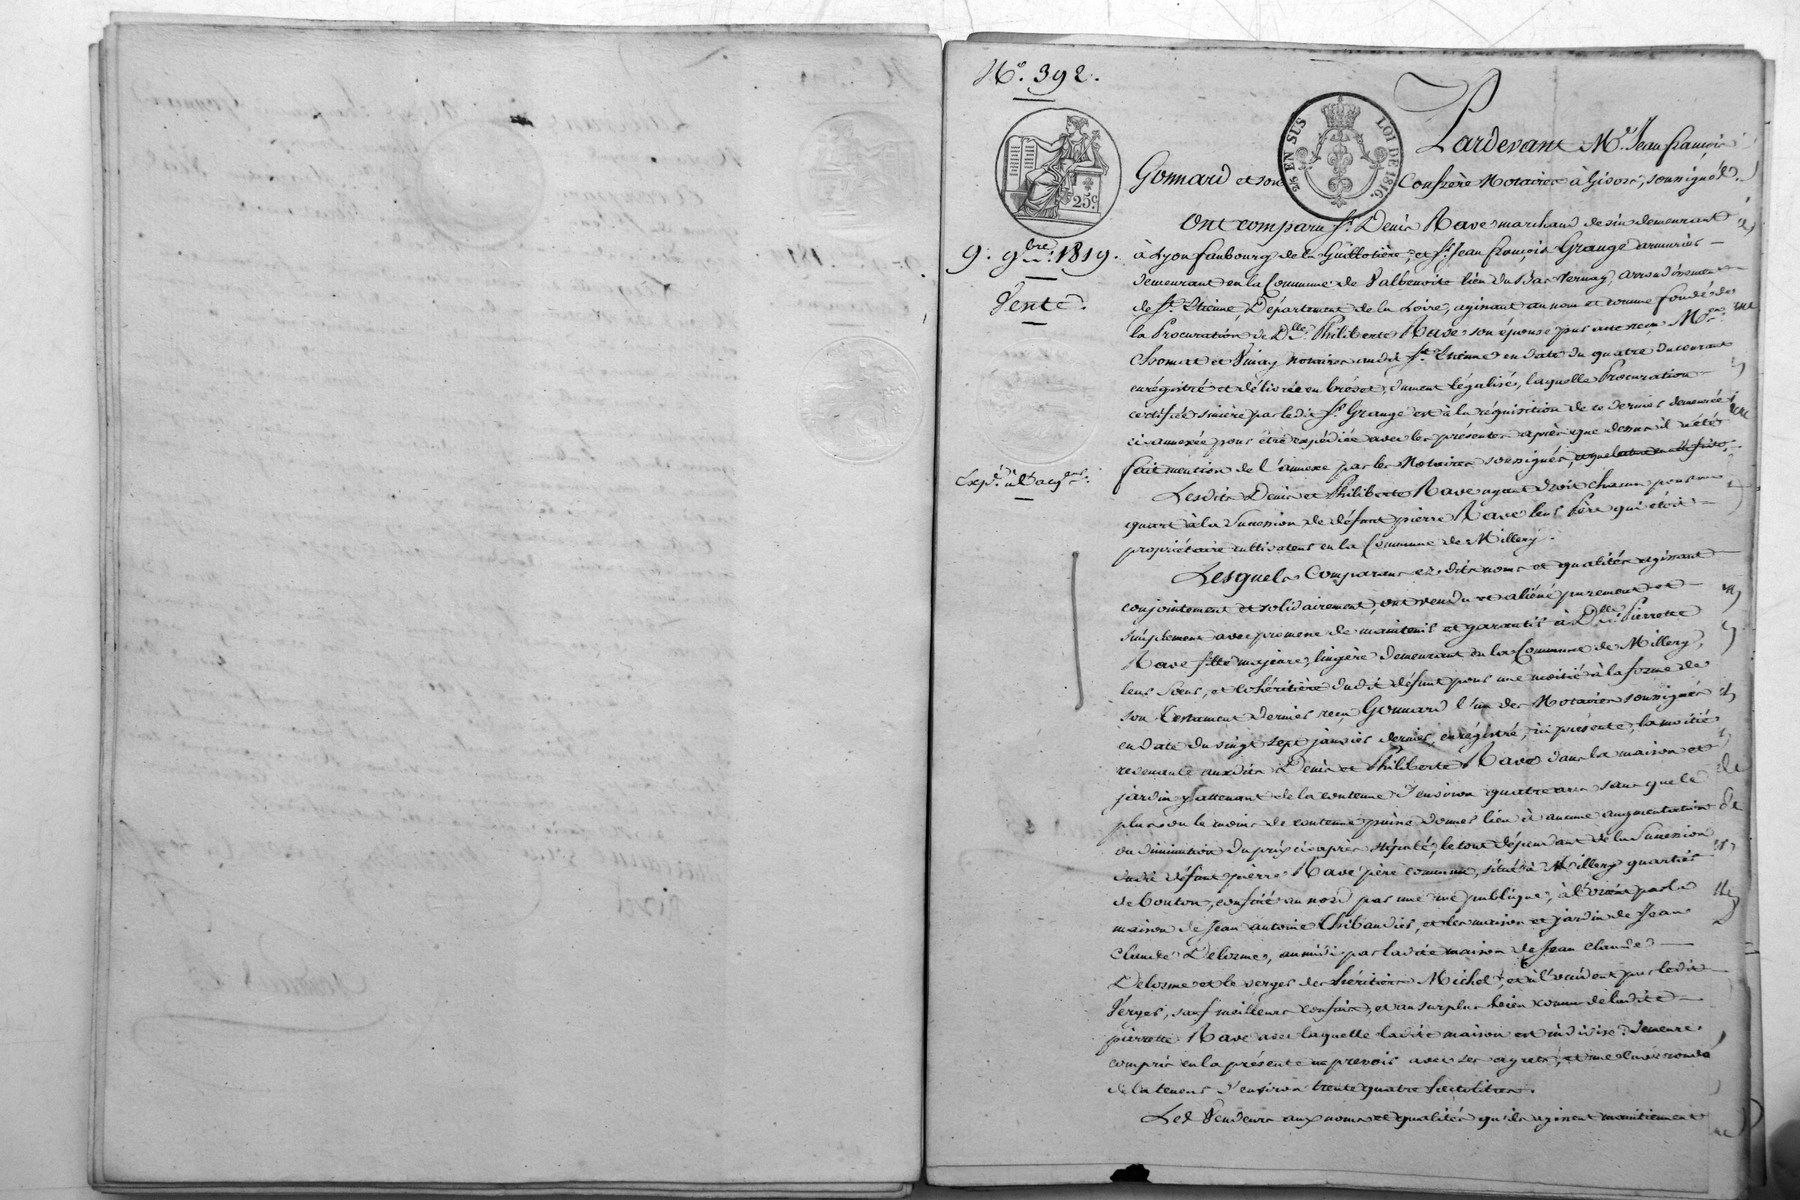 N.° 392.
25 EN SUS LOI DE 1816.
25.c
Pardevant M.e Jean françois
Gonnard et son Confrère Notaires à Givors, soussignés.
9. 9.bre 1819.
Vente.
Ont comparu S.r Denis Rave marchand de vin demeurant
à Lyon faubourg de la Guillotière, et S.r Jean françois Grange armurier
demeurant en la Commune de Valbenoite lieu du Bas Vernay, arrondissement
de S.t Etienne, Département de la Loire, agissant au nom et comme fondé de
la Procuration de D.lle Philiberte Rave son épouse par acte reçu M.es
et Vinay notaires audit S.t Etienne en date du quatre du courant
enrégistré et délivrée en brevet, dument légalisé, laquelle Procuration
certifiée sincère par ledit S.r Grange est à la réquisition de ce dernier demeurée
ci annexée pour être expédiée avec les présentes après que dessus il a été
fait mention de l'annexe par les Notaires soussignés,
Lesdits Denis et Philiberte Rave ayant droit chacun pour un
quart à la Succession de défunt pierre Rave leur Père qui étoit
propriétaire cultivateur en la Commune de Millery.
Lesquels Comparans ez dits noms et qualités agissant
conjointement et solidairement, ont vendu et aliéné purement et
simplement avec promesse de maintenir et garantir à D.lle Pierrette
Rave fille majeure, lingère demeurant en la Commune de Millery,
leur Soeur, et cohéritière dudit défunt pour une moitié à la forme de
son Testament dernier reçu Gonnard l'un des Notaires soussignés
en date du vingt sept janvier dernier, enrégistré, ici présente, la moitié
revenante auxdits Denis et Philiberte Rave dans la maison et
jardin y attenant de la contenue d'environ quatre ares sans que le
plus ou le moins de contenue puisse donner lieu à aucune augmentation
ou diminution du prix ci après stipulé, le tout dépendant de la Succession
dudit défunt pierre Rave père commun, situé à Millery quartier
de bouton, confiné au nord par une rue publique, à l'orient par la
maison de Jean antoine Thibaudier, et les maison et jardin de Jean
Claude Delorme, au midi par ladite maison de Jean Claude
Delorme et le verger des héritiers Michel, et à l'occident par ledit
Verger, sauf meilleurs confins, et au surplus bien connu de ladite
pierrette Rave avec laquelle ladite maison est indivise. Demeure
compris en la présente un pressoir avec ses agrets, et une cuve ronde
de la teneur d'environ trente quatre hectolitres.
Les Vendeurs aux noms et qualités qu'ils agissent maintiennent